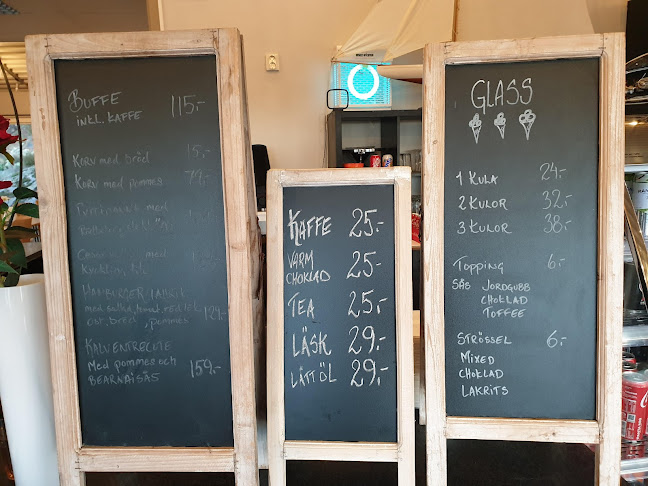 BUFFE 115:-
INKL. KAFFE
KORV med bröd 15,-
KORV med pommes 79,-
med
med
HAMBURGER
med sallad, tomat, röd lök
ost, bröd, pommes 129,-
KALVENTRECOTE
Med pommes och
BEARNAISÅS 159:-
KAFFE 25:-
VARM
CHOKLAD 25:-
TEA 25:-
LÄSK 29:-
LÄTTÖL 29:-
GLASS
1 KULA 24:-
2 KULOR 32:-
3 KULOR 38:-
TOPPING 6:-
SÅS JORDGUBB
CHOKLAD
TOFFEE
STRÖSSEL 6:-
MIXED
CHOKLAD
LAKRITS